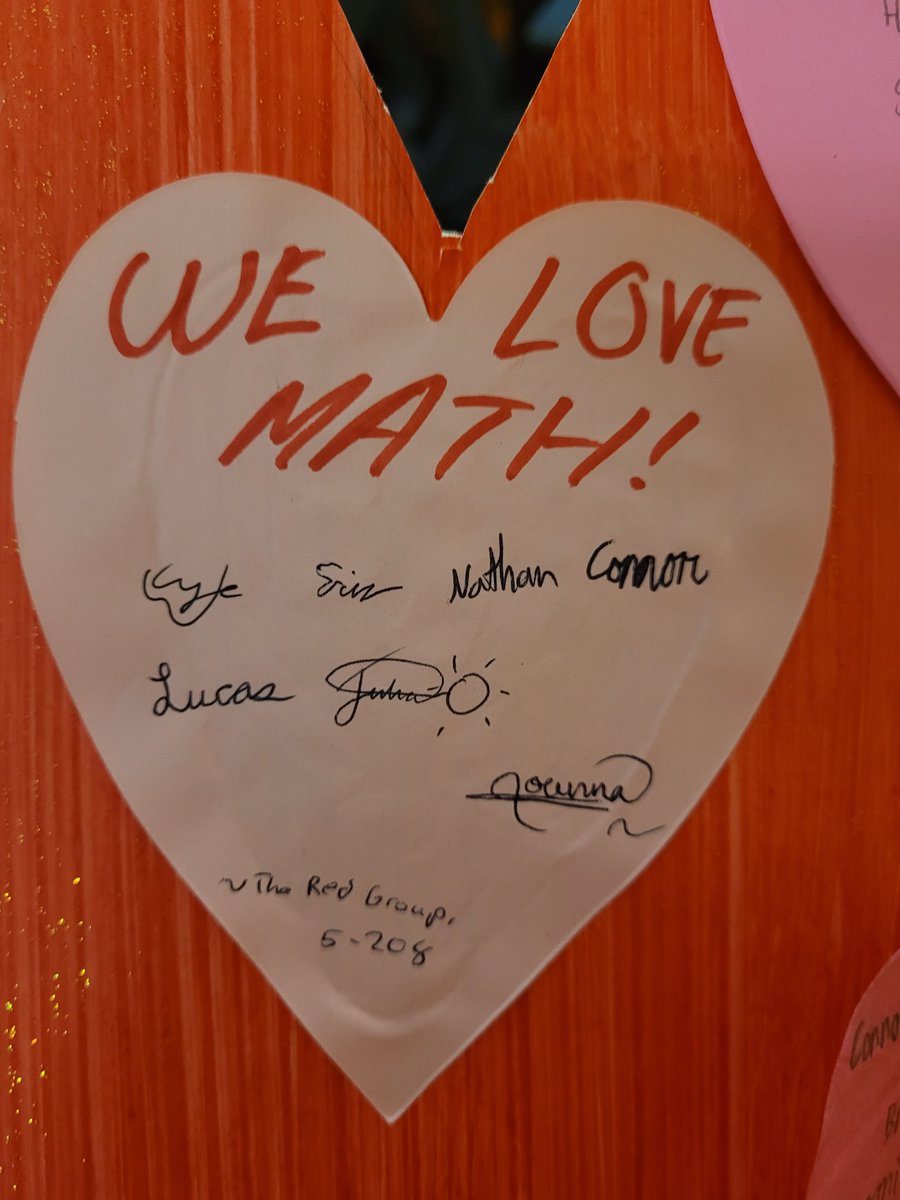 WE LOVE
MATH!
Kyle Eric Nathan Connor
Lucas Julia
Joanna
~The Red Group,
5-208
Conno